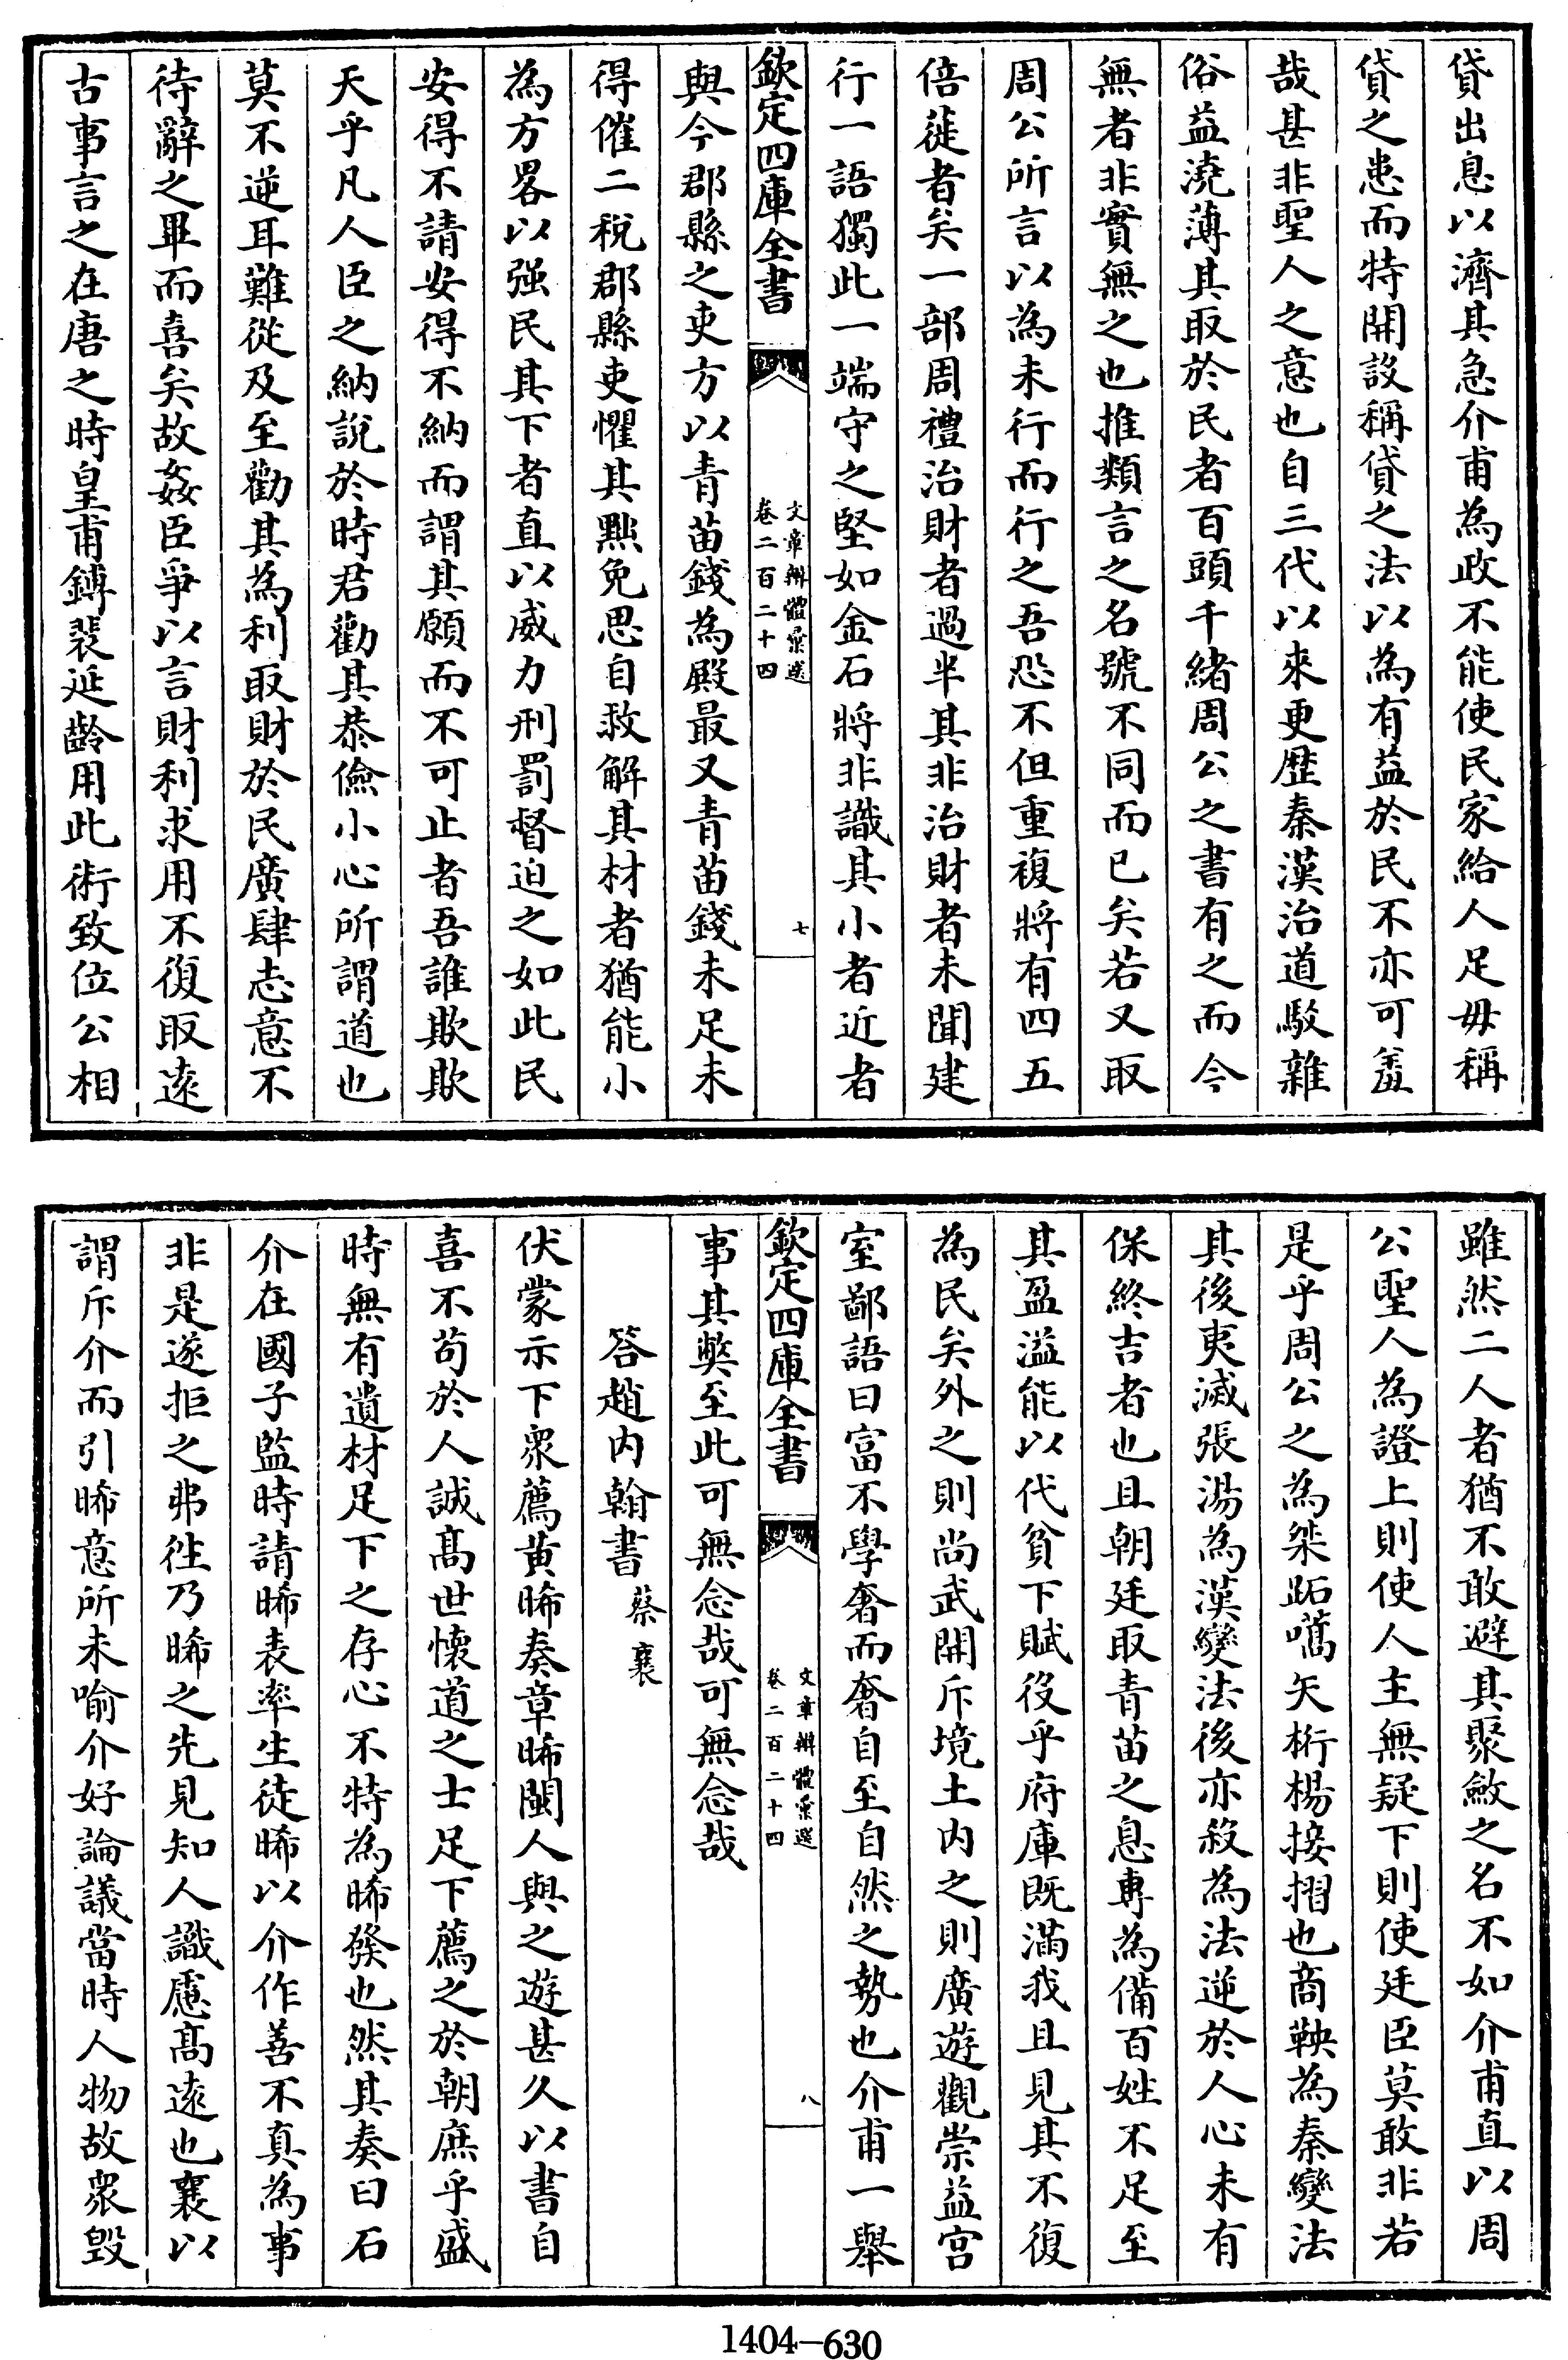 貸出息以濟其急介甫為政不能使民家給人足毋稱
貸之患而特開設稱貸之法以為有益於民不亦可羞
哉甚非聖人之意也自三代以來更歴秦漢治道駁雜
俗益澆薄其取於民者百頭千緒周公之書有之而今
無者非實無之也推類言之名號不同而已矣若又取
周公所言以為未行而行之吾恐不但重複將有四五
倍蓰者矣一部周禮治財者過半其非治財者未聞建
行一語獨此一端守之堅如金石將非識其小者近者
欽定四庫全書
文章辨體彙選
卷二百二十四
七
與今郡縣之吏方以青苗錢為殿最又青苗錢未足未
得催二税郡縣吏懼其黜免思自救解其材者猶能小
為方畧以强民其下者直以威力刑罰督迫之如此民
安得不請安得不納而謂其願而不可止者吾誰欺欺
天乎凡人臣之納說於時君勸其恭儉小心所謂道也
莫不逆耳難從及至勸其為利取財於民廣肆志意不
待辭之畢而喜矣故姦臣爭以言財利求用不復取逺
古事言之在唐之時皇甫鎛裴延齡用此術致位公相
雖然二人者猶不敢避其聚斂之名不如介甫直以周
公聖人為證上則使人主無疑下則使廷臣莫敢非若
是乎周公之為桀跖嚆矢桁楊接摺也商鞅為秦變法
其後夷滅張湯為漢變法後亦殺為法逆於人心未有
保終吉者也且朝廷取青苗之息專為備百姓不足至
其盈溢能以代貧下賦役乎府庫既滿我且見其不復
為民矣外之則尚武開斥境土内之則廣遊觀崇益宮
室鄙語曰富不學奢而奢自至自然之勢也介甫一舉
欽定四庫全書
文章辨體彙選
卷二百二十四
八
事其獘至此可無念哉可無念哉
答趙内翰書 蔡襄
伏蒙示下衆薦黄晞奏章晞閩人與之遊甚久以書自
喜不苟於人誠髙世懷道之士足下薦之於朝庶乎盛
時無有遺材足下之存心不特為晞發也然其奏曰石
介在國子監時請晞表率生徒晞以介作善不真為事
非是遂拒之弗徃乃晞之先見知人識慮髙逺也襄以
謂斥介而引晞意所未喻介好論議當時人物故衆毁
1404-630